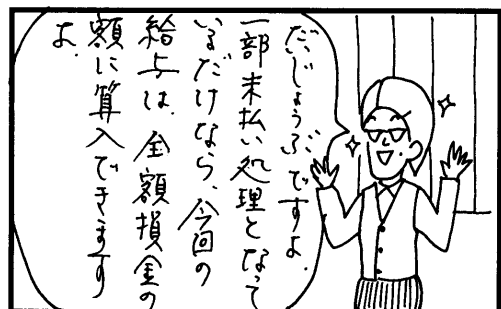 だいじょうぶですよ。
一部未払い処理となって
いるだけなら、今回の
給与は、全額損金の
額に算入できます
よ。